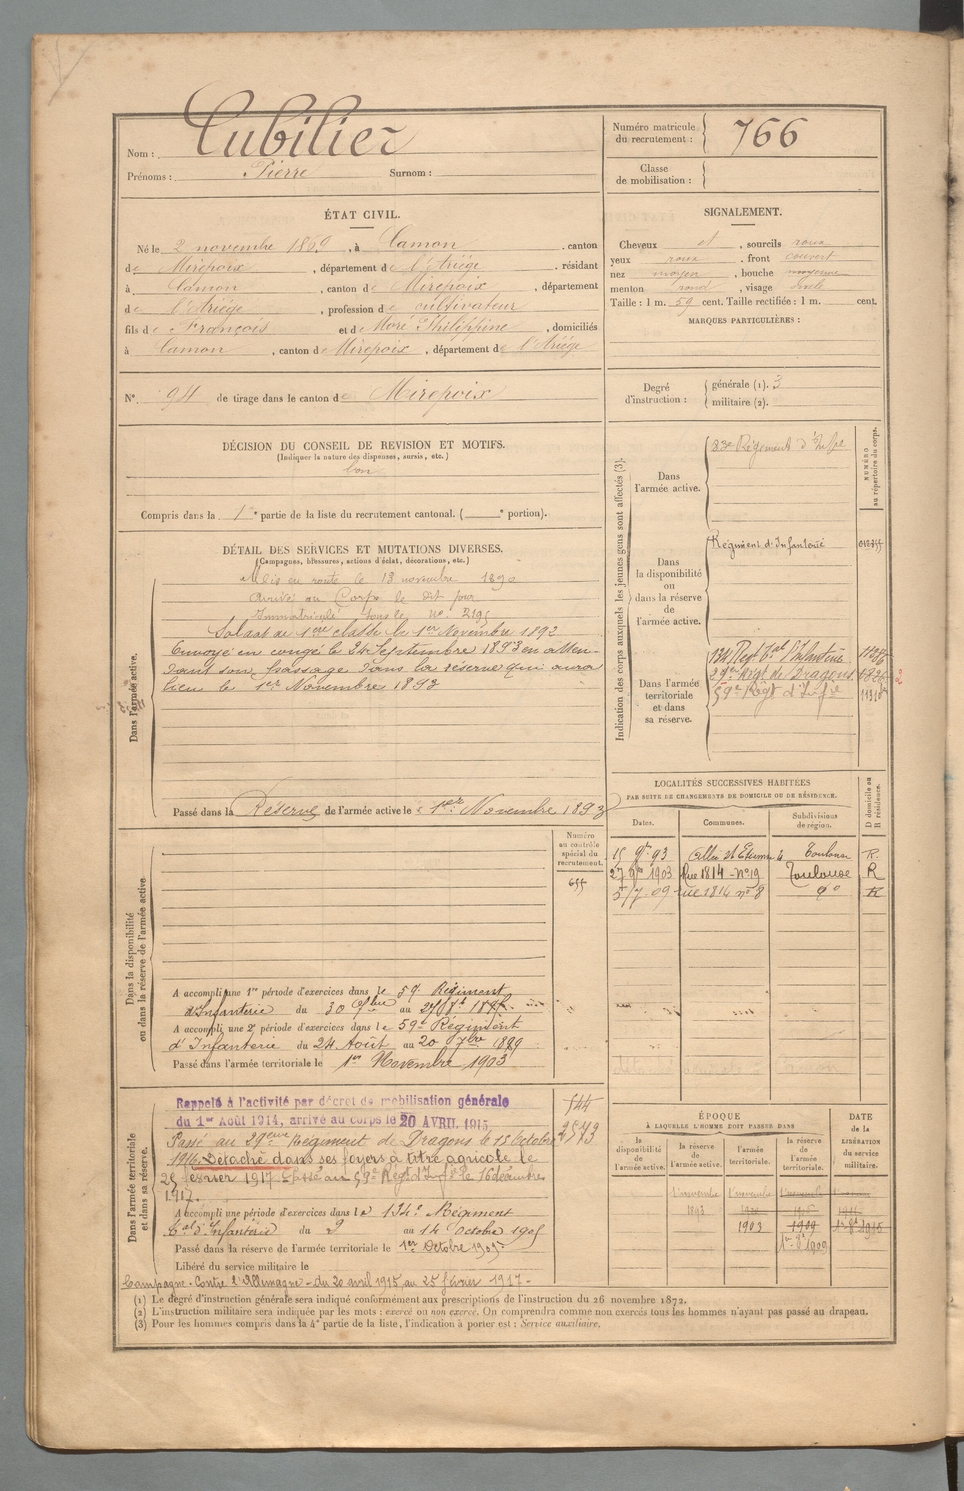 Nom : Cubilier
Prénoms : Pierre Surnom :
Numéro matricule du recrutement : 766
Classe de mobilisation :
ÉTAT CIVIL.
Né le 2 novembre 1869, à Camon, canton
de Mirepoix, département de l'Ariége, résidant
à Camon, canton de Mirepoix, département
de l'Ariége, profession de cultivateur
fils de François et de Moré Philippine, domiciliés
à Camon, canton de Mirepoix, département de l'Ariége
N° 94 de tirage dans le canton de Mirepoix
SIGNALEMENT.
Cheveux et, sourcils roux
yeux roux, front couvert
nez moyen, bouche moyenne
menton rond, visage
Taille : 1 m. 59 cent. Taille rectifiée : 1 m. cent.
MARQUES PARTICULIÈRES :
Degré d'instruction : générale (1). 3
militaire (2).
DÉCISION DU CONSEIL DE REVISION ET MOTIFS.
(Indiquer la nature des dispenses, sursis, etc.)
bon
Compris dans la 1e partie de la liste du recrutement cantonal. ( e portion).
DÉTAIL DES SERVICES ET MUTATIONS DIVERSES.
(Campagnes, blessures, actions d'éclat, décorations, etc.)
Dans l'armée active.
Mis en route le 13 novembre 1890
arrivé au Corps le dit jour
Immatriculé sous le no. 2195
Soldat de 1ère classe le 1er Novembre 1892
Envoyé en congé le 24 Septembre 1893 en atten-
dant son passage dans la réserve qui aura
lieu le 1er Novembre 1893
Passé dans la Réserve de l'armée active le 1er Novembre 1893
Indication des corps auxquels les jeunes gens sont affectés (3).
NUMÉRO au répertoire du corps.
Dans l'armée active.
83e Régiment d'Infie
Dans la disponibilité ou dans la réserve de l'armée active.
Régiment d'Infanterie
Dans l'armée territoriale et dans sa réserve.
134 Regt tal d'Infanterie
29e Régt de Dragons
59e Regt d'Infie
LOCALITÉS SUCCESSIVES HABITÉES
PAR SUITE DE CHANGEMENTS DE DOMICILE OU DE RÉSIDENCE.
Dates. Communes. Subdivisions de région. D domicile ou R résidence.
15 9re 93 Toulouse R.
27 1903 Rue 1814 - no 19 Toulouse R
5/7-09 rue 1814 no 8 do R
Dans la disponibilité ou dans la réserve de l'armée active
Numéro au contrôle spécial du recrutement.
655
A accompli une 1re période d'exercices dans le 59 Régiment
d'Infanterie du 30 au
A accompli une 2e période d'exercices dans le 59e Régiment
d'Infanterie du 24 Août au 20 7bre 1899
Passé dans l'armée territoriale le 1er Novembre 1903
Dans l'armée territoriale et dans sa réserve.
544
2573
Rappelé à l'activité par décret de mobilisation générale
du 1er Août 1914, arrivé au corps le 20 AVRIL 1915
Passé au 29ème Régiment de Dragons le 15 Octobre
1916. Détaché dans ses foyers à titre agricole le
25 février 1917. Passé au 59e Régt d'Infie le 16 décembre
1917.
A accompli une période d'exercices dans le 134e Régiment
tal d'Infanterie du 2 au 14 octobre 1905
Passé dans la réserve de l'armée territoriale le 1er Octobre 1909
Libéré du service militaire le
Campagne. Contre l'Allemagne - du 20 avril 1915 au 25 février 1917 -
ÉPOQUE
À LAQUELLE L'HOMME DOIT PASSER DANS
DATE de la LIBÉRATION du service militaire.
la disponibilité de l'armée active.
la réserve de l'armée active.
l'armée territoriale.
la réserve de l'armée territoriale.
1 novembre 1893
1 novembre 1903
1909
1er 8e 1909
(1) Le degré d'instruction générale sera indiqué conformément aux prescriptions de l'instruction du 26 novembre 1872.
(2) L'instruction militaire sera indiquée par les mots : exercé ou non exercé. On comprendra comme non exercés tous les hommes n'ayant pas passé au drapeau.
(3) Pour les hommes compris dans la 4e partie de la liste, l'indication à porter est : Service auxiliaire.